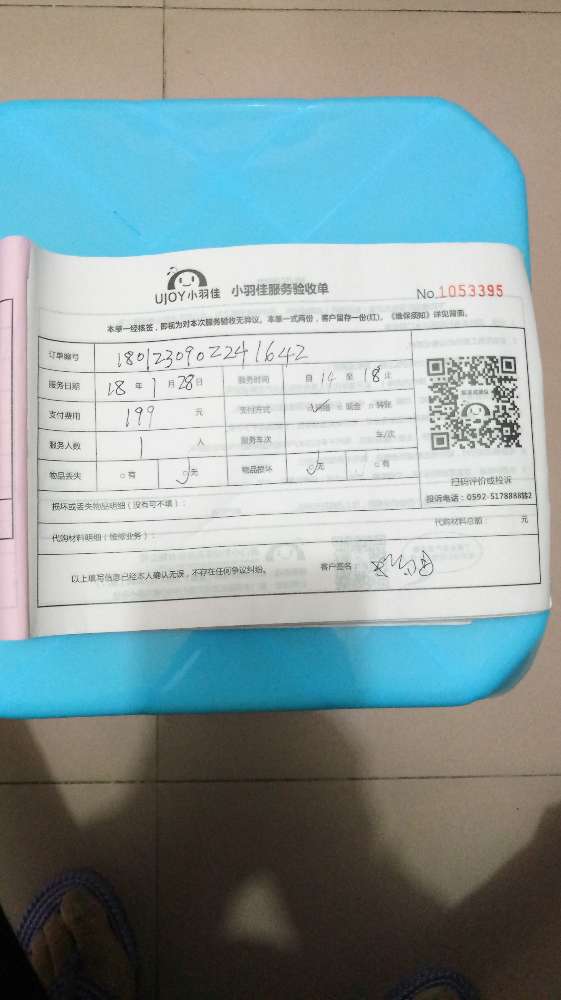 UJOY小羽佳 小羽佳服务验收单 No.1053395
本单一经核签，即视为对本次服务验收无异议。本单一式两份，客户留存一份(红)。《维保须知》详见背面。
订单编号 1801230902241642
服务日期 18年1月28日 服务时间 自14至18止
支付费用 199元 支付方式 网络 现金 转账
服务人数 1人 服务车次 车/次
物品丢失 有 无 物品损坏 无 有
扫码评价或投诉
投诉电话：0592-5178888转2
损坏或丢失物品明细（没有可不填）：
代购材料明细（维修业务）： 代购材料总额： 元
以上填写信息已经本人确认无误，不存在任何争议纠纷。 客户签名：